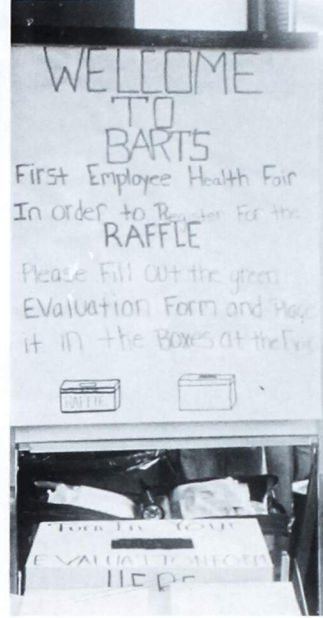 WELCOME
TO
BARTS
First Employee Health Fair
In order to Register For the
RAFFLE
Please Fill out the green
EValuation Form and Place
it in the Boxes at the Exit
RAFFLE
Turn In Your
EVALUATION FORM
HERE